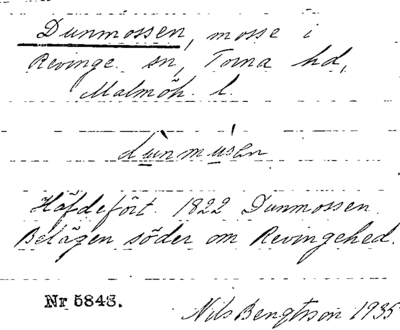 Dunmossen, mosse i
Revinge sn, Torna hd,
Malmöh. l.
dùnmùsen
Häfdefört 1822 Dunmossen
Belägen söder om Revingehed.
Nr 5843.
Nils Bengtsson 1935